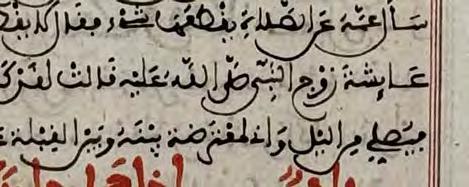 سأل عمه عن الصلاة يقطعها شيء فقال لا يق
عايشة زوج النبي صلى الله عليه قالت لقد ك
فيصلي من اليل وإني لمعترضة بينه وبين القبلة ع